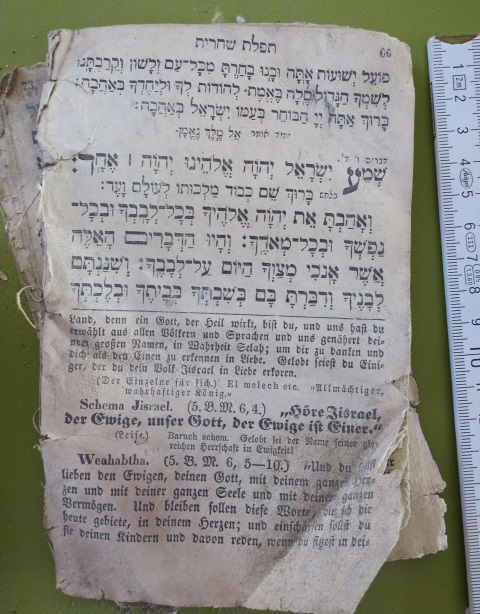 תפלת שחרית
66
פּוֹעֵל יְשׁוּעוֹת אָתָּה וּבָנוּ בָחַרְתָּ מִכָּל־עַם וְלָשׁוֹן וְקֵרַבְתָּנוּ
לְשִׁמְךָ הַגָּדוֹל סֶלָה בֶּאֱמֶת· לְהוֹדוֹת לְךָ וּלְיַחֶדְךָ בְּאַהֲבָה:
בָּרוּךְ אַתָּה יְיָ הַבּוֹחֵר בְּעַמּוֹ יִשְׂרָאֵל בְּאַהֲבָה:
יחיד אומר אֵל מֶלֶךְ נֶאֱמָן·
דברים ו' ד'.
שְׁמַע יִשְׂרָאֵל יְהֹוָה אֱלֹהֵינוּ יְהֹוָה ׀ אֶחָד:
בלחש בָּרוּךְ שֵׁם כְּבוֹד מַלְכוּתוֹ לְעוֹלָם וָעֶד:
וְאָהַבְתָּ אֵת יְהֹוָה אֱלֹהֶיךָ בְּכָל־לְבָבְךָ וּבְכָל־
נַפְשְׁךָ וּבְכָל־מְאֹדֶךָ: וְהָיוּ הַדְּבָרִים הָאֵלֶּה
אֲשֶׁר אָנֹכִי מְצַוְּךָ הַיּוֹם עַל־לְבָבֶךָ: וְשִׁנַּנְתָּם
לְבָנֶיךָ וְדִבַּרְתָּ בָּם בְּשִׁבְתְּךָ בְּבֵיתֶךָ וּבְלֶכְתְּךָ
Land, denn ein Gott, der Heil wirkt, bist du, und uns hast du
erwählt aus allen Völkern und Sprachen und uns genähert dei-
nem großen Namen, in Wahrheit Selah; um dir zu danken und
dich als den Einen zu erkennen in Liebe. Gelobt seiest du Ewi-
ger, der du dein Volk Jisrael in Liebe erkoren.
(Der Einzelne für sich.) El melech etc. „Allmächtiger,
wahrhaftiger König.“
Schema Jisrael. (5. B. M. 6, 4.) „Höre Jisrael,
der Ewige, unser Gott, der Ewige ist Einer.“
(Leise.) Baruch schem. Gelobt sei der Name seiner glor-
reichen Herrschaft in Ewigkeit!
Weahabtha. (5. B. M. 6, 5—10.) „Und du sollst
lieben den Ewigen, deinen Gott, mit deinem ganzen Her-
zen und mit deiner ganzen Seele und mit deinem ganzen
Vermögen. Und bleiben sollen diese Worte, die ich dir
heute gebiete, in deinem Herzen; und einschärfen sollst du
sie deinen Kindern und davon reden, wenn du sitzest in dei-
1
2m
2
3
4
5
6
7
8
9
10
11
12
13